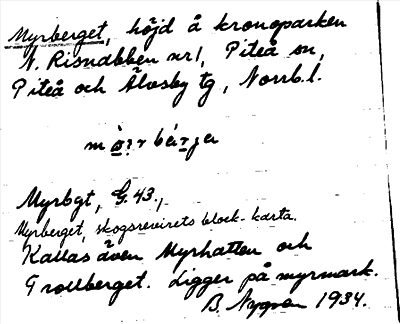 Myrberget, höjd å kronoparken
N. Risnabben nr 1, Piteå sn,
Piteå och Älvsby tg, Norrb. l.
Myrbgt, G. 43.,
Myrberget, skogsrevirets block-karta.
Kallas även Myrhatten och
Trollberget. Ligger på myrmark.
B. Nygren 1934.